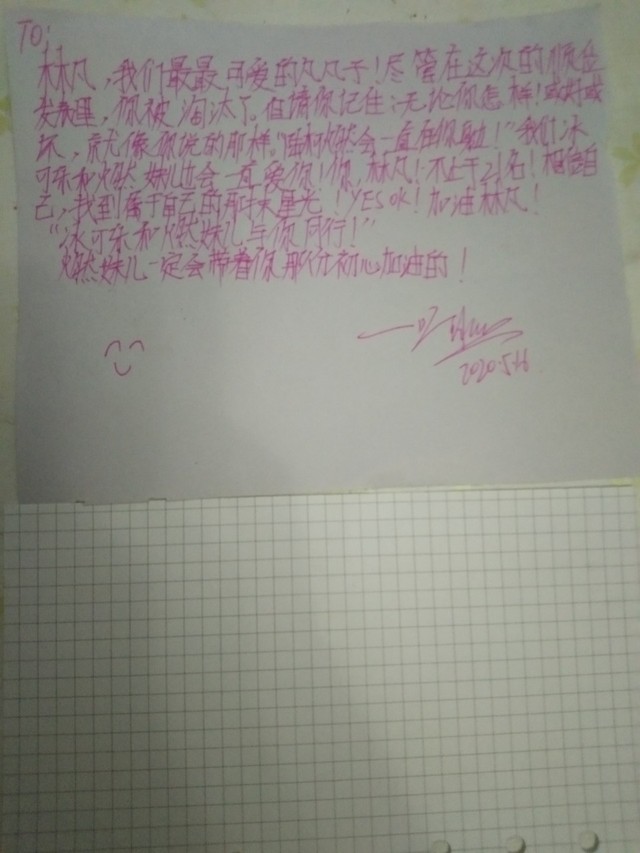 TO:
林凡，我们最最可爱的凡凡子！尽管在这次的顺位
发表里，你被淘汰了。但请你记住：无论你怎样！或好或
坏，就像你说的那样。"燃会一直在你身边！"我们冰
可乐和燃燃妹儿也会一直爱你！你，林凡！不止于21名！相信自
己，找到属于自己的那束星光！YES OK！加油林凡！
"冰可乐和燃燃妹儿与你同行！"
燃燃妹儿一定会带着你那份初心加油的！
2020.5.16